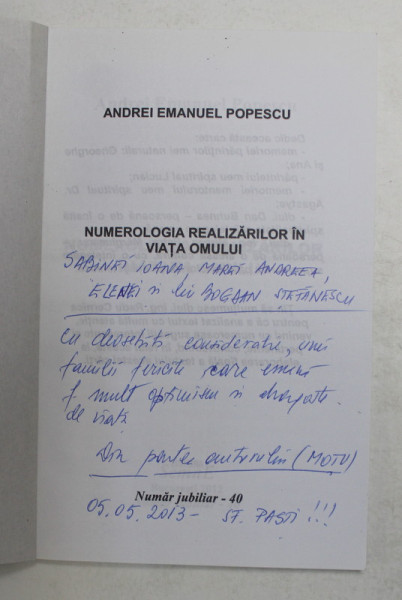 ANDREI EMANUEL POPESCU
NUMEROLOGIA REALIZĂRILOR ÎN
VIAȚA OMULUI
SABINEI IOANA MAREI ANDREEA,
ELENEI și lui BOGDAN ȘTEFĂNESCU
cu deosebită considerație, unei
familii fericite care emană
f. mult optimism si dragoste
de viață
Din partea autorului (MOTU)
Număr jubiliar - 40
05.05.2013 - SF. PAȘTI !!!